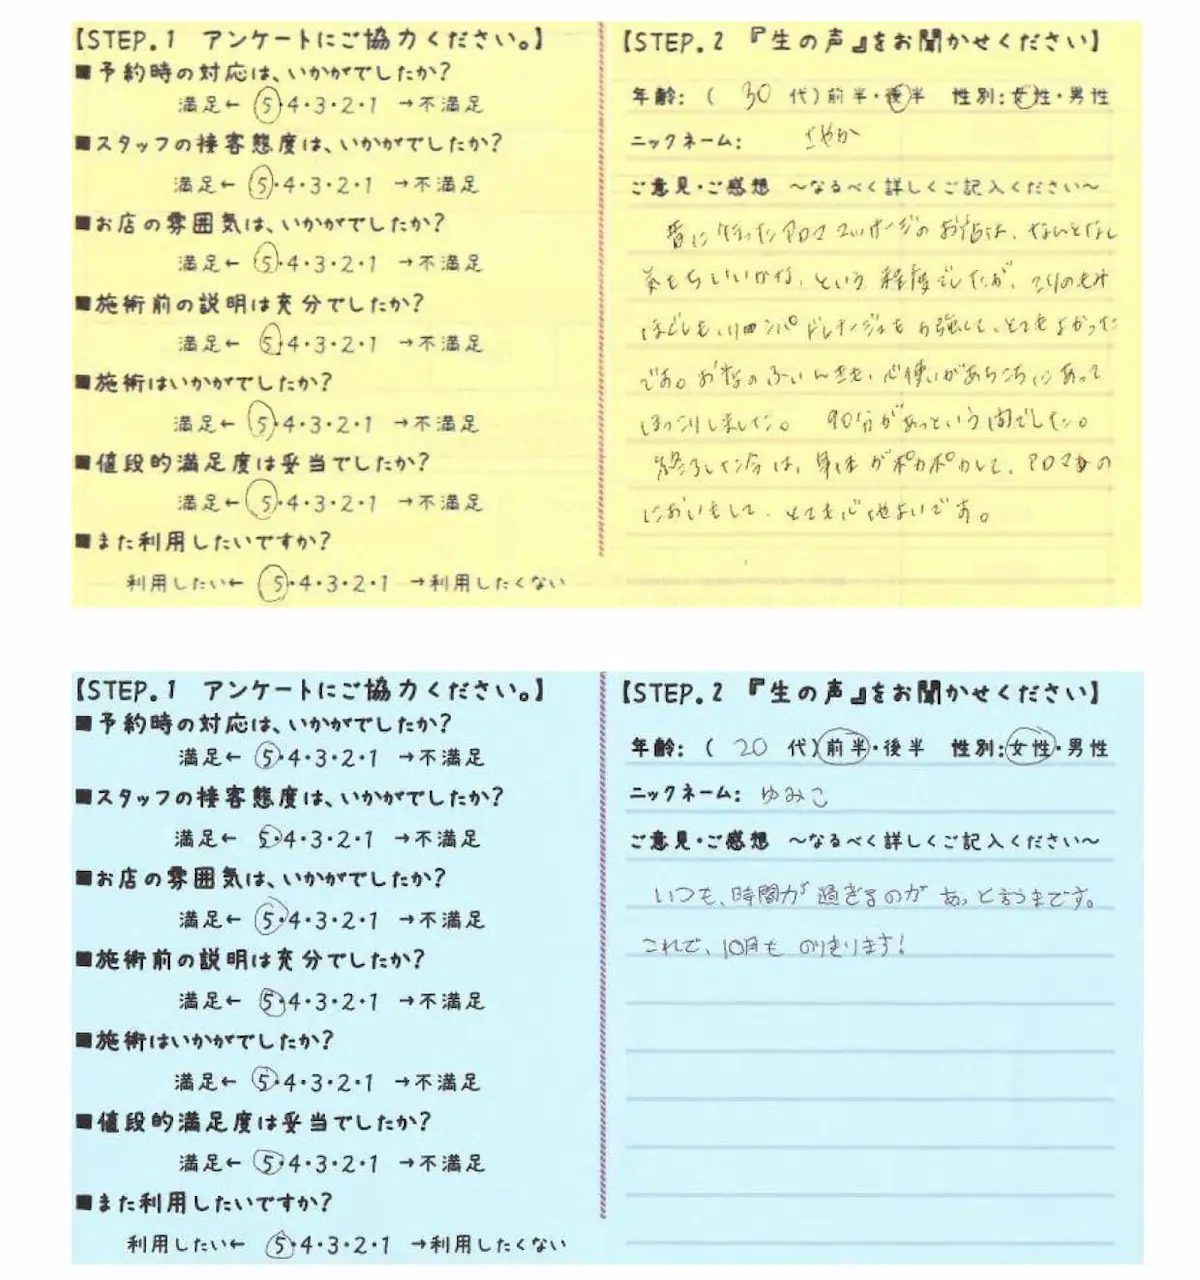 【STEP.1 アンケートにご協力ください。】
■予約時の対応は、いかがでしたか?
満足← 5・4・3・2・1 →不満足
■スタッフの接客態度は、いかがでしたか?
満足← 5・4・3・2・1 →不満足
■お店の雰囲気は、いかがでしたか?
満足← 5・4・3・2・1 →不満足
■施術前の説明は充分でしたか?
満足← 5・4・3・2・1 →不満足
■施術はいかがでしたか?
満足← 5・4・3・2・1 →不満足
■値段的満足度は妥当でしたか?
満足← 5・4・3・2・1 →不満足
■また利用したいですか?
利用したい← 5・4・3・2・1 →利用したくない
【STEP.2 『生の声』をお聞かせください】
年齢:( 30 代)前半・後半 性別:女性・男性
ニックネーム: さやか
ご意見・ご感想 〜なるべく詳しくご記入ください〜
昔に行ったアロママッサージのお店は、なんとなし
気もちいいかな、という程度でしたが、コリのもみ
ほぐしも、リンパドレナージュも勉強して、とてもよかった
です。お茶の ふいんきも、心使いがあちこちにあって
ほっこりしました。 90分があっという間でした。
終了した今は、身体がポカポカして、アロマの
においもして、とても心地よいです。
【STEP.1 アンケートにご協力ください。】
■予約時の対応は、いかがでしたか?
満足← 5・4・3・2・1 →不満足
■スタッフの接客態度は、いかがでしたか?
満足← 5・4・3・2・1 →不満足
■お店の雰囲気は、いかがでしたか?
満足← 5・4・3・2・1 →不満足
■施術前の説明は充分でしたか?
満足← 5・4・3・2・1 →不満足
■施術はいかがでしたか?
満足← 5・4・3・2・1 →不満足
■値段的満足度は妥当でしたか?
満足← 5・4・3・2・1 →不満足
■また利用したいですか?
利用したい← 5・4・3・2・1 →利用したくない
【STEP.2 『生の声』をお聞かせください】
年齢:( 20 代)前半・後半 性別:女性・男性
ニックネーム: ゆみこ
ご意見・ご感想 〜なるべく詳しくご記入ください〜
いつも、時間が過ぎるのが あっと言うまです。
これで、10月も のりきります!